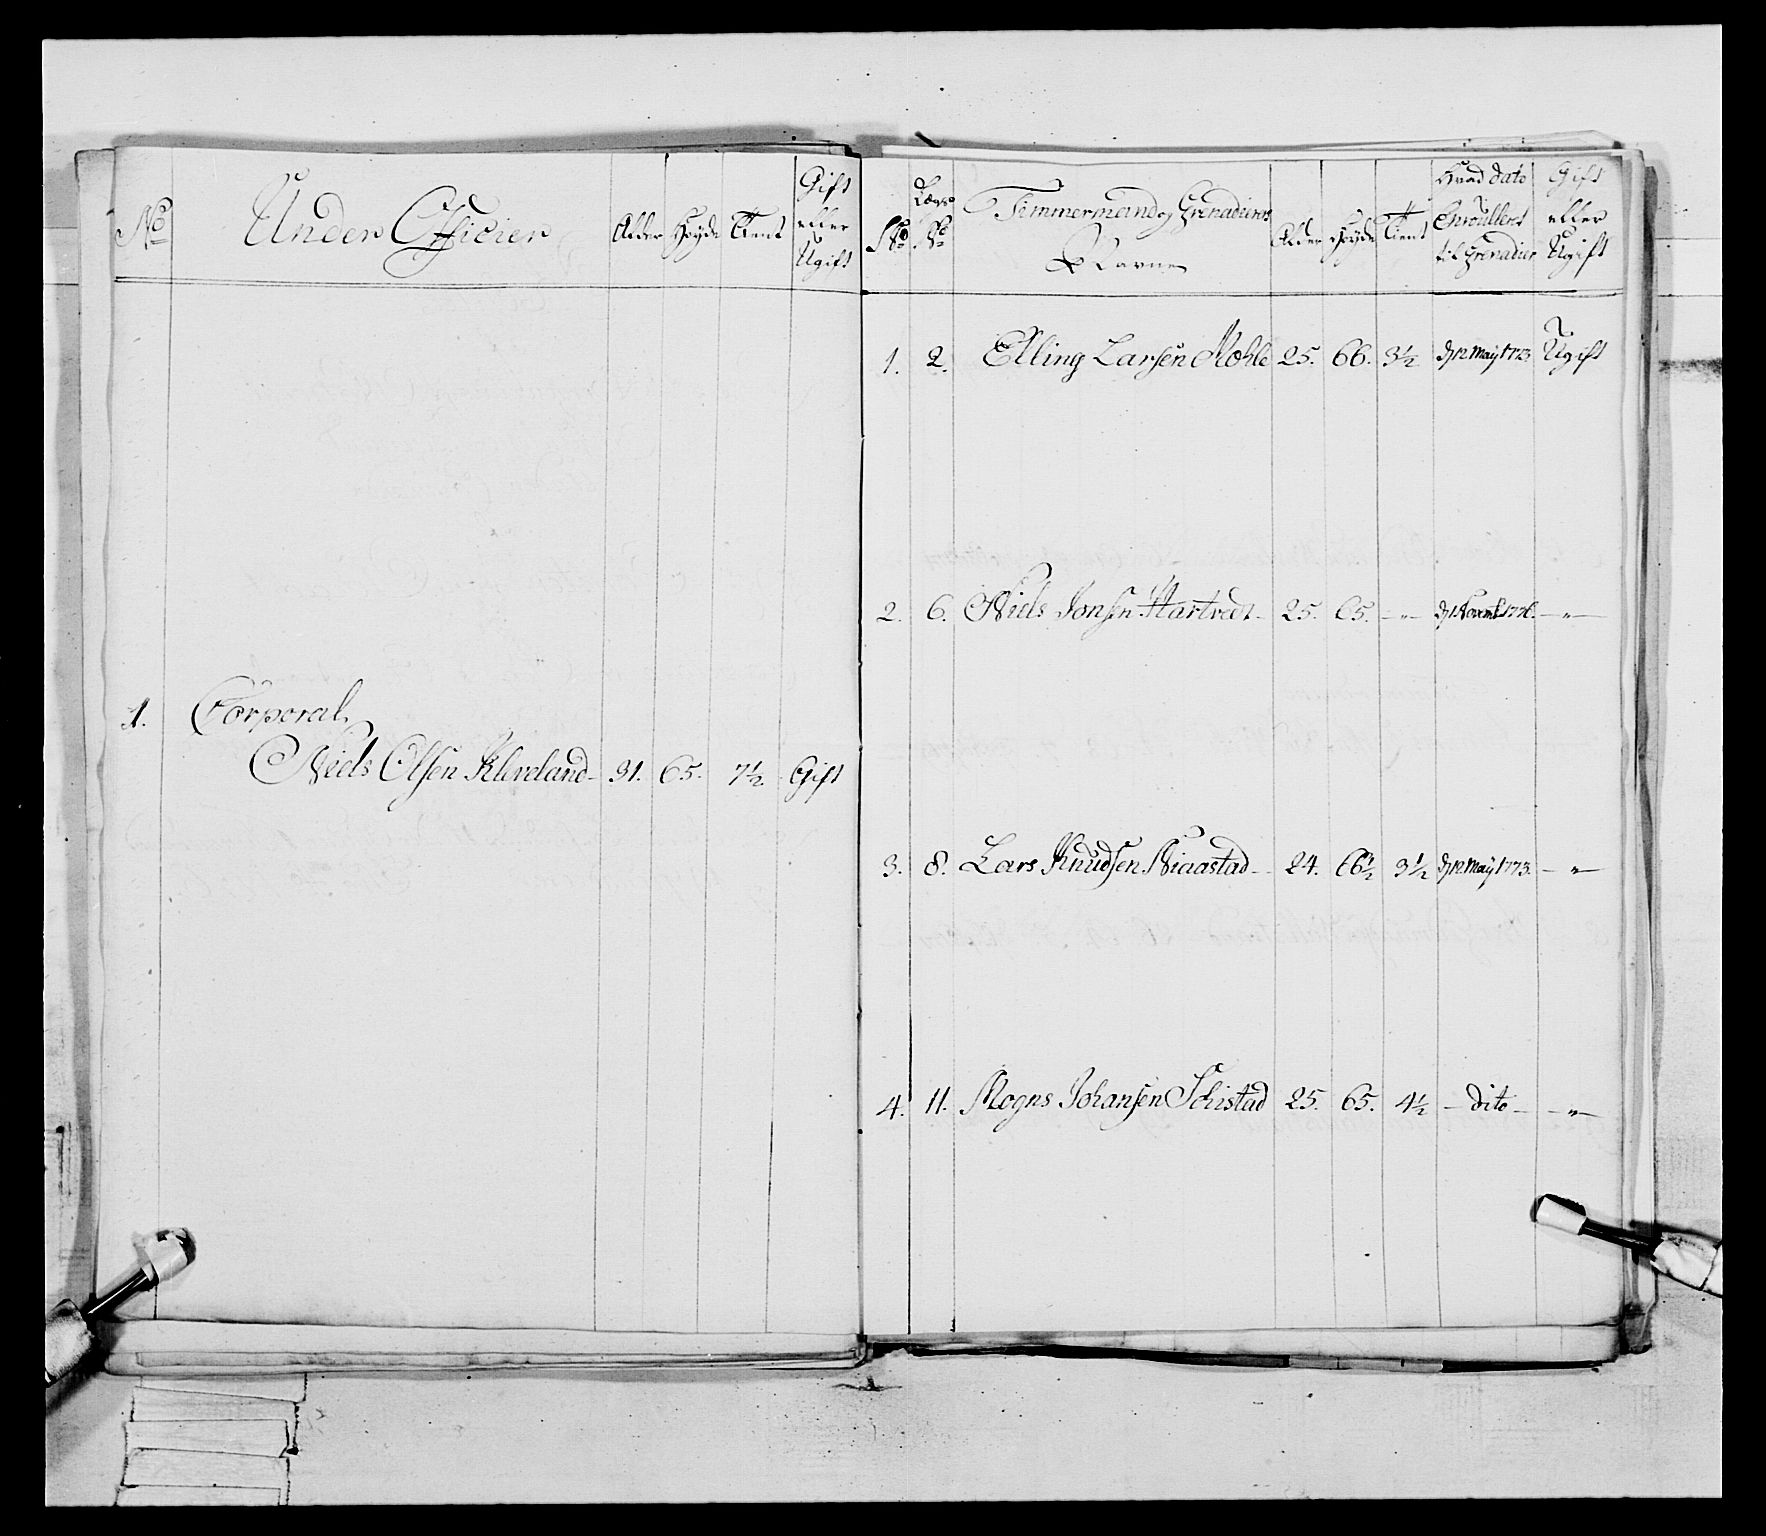 No
Under Officier
Alder
Høyde
Tient
Gift
eller
Ugift
1. Corporal
Niels Olsen Kleveland 31. 65. 7½ Gift
No
Lægs
No
Timmermænd og Grenadierers
Navne
Alder
Høyde
Tient
Hvad dato
Enroullert
til Grenadier
Gift
eller
Ugift
1. 2. Elling Larsen Mohle 25. 66. 3½ d 12 May 1773. Ugift
2. 6. Niels Jonsen Hartvedt 25. 65. - " - - " -
3. 8. Lars Knudsen Niaastad 24. 66½ 3½ d 12 May 1773. - " -
4. 11. Mogns Johansen 25. 65. 4½ - dito - - " -